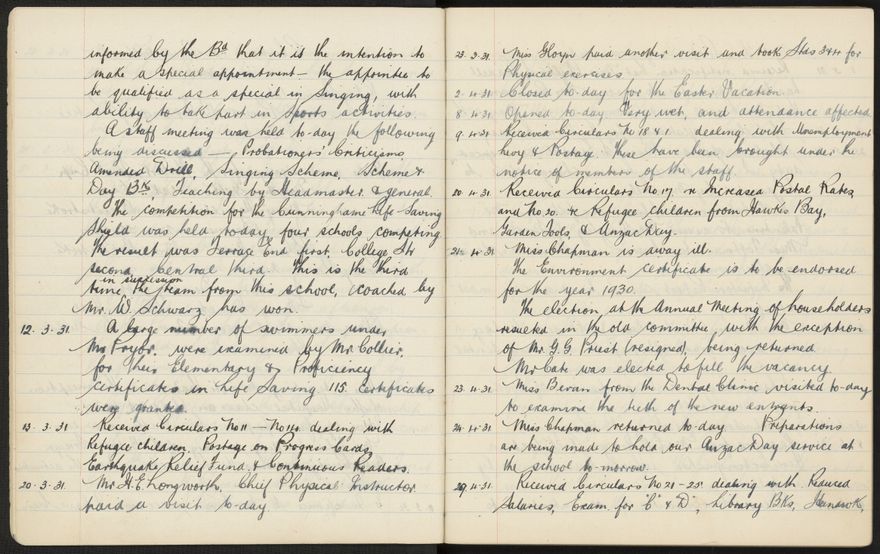 informed by the Bd that it is the intention to
make a special appointment - the appointee to
be qualified as a special in Singing, with
ability to take part in Sports activities.
A staff meeting was held to-day the following
being discussed - Probationers' Criticisms,
Amended Drill, Singing Scheme, Scheme &
Day Bk, Teaching by Headmaster & general.
The competition for the Cunninghame Life-Saving
Shield was held today four schools competing
the result was Terrace End first, College St
second, Central third. This is the third
in succession
time, the team from this school, coached by
Mr. W Schwarz has won.
12. 3. 31. A large number of swimmers under
Mr Pryor, were examined by Mr. Collier,
for their Elementary & Proficiency
certificates in Life Saving 115 certificates
were granted.
13. 3. 31 Received Circulars No 11 - No 14 dealing with
Refugee children, Postage on Progress Cards,
Earthquake Relief Fund, & Continuous Readers.
20. 3. 31. Mr H. E Longworth, Chief Physical Instructor
paid a visit to-day
23. 3. 31. Miss Gloyn paid another visit and took Stds 3&4 for
Physical exercises
2. 4. 31 Closed to-day for the Easter Vacation
8. 4. 31 Opened to-day Very wet, and attendance affected
9. 4. 31 Received Circulars No 18 & 1 dealing with Unemployment
Levy & Postage. These have been brought under the
notice of members of the staff.
20. 4. 31. Received Circulars No 17 re Increased Postal Rates
and No 20. re Refugee children from Hawke's Bay,
Garden Tools, & Anzac Day.
21. 4. 31 Miss Chapman is away ill.
The Environment certificate is to be endorsed
for the year 1930.
The election at the Annual Meeting of householders
resulted in the old committee, with the exception
of Mr. G. G. Priest (resigned), being returned
Mr Cate was elected to fill the vacancy
23. 4. 31. Miss Bevan from the Dental Clinic visited to-day
to examine the teeth of the new entrants.
24. 4. 31 Miss Chapman returned to-day Preparations
are being made to hold our Anzac Day service at
the school to-morrow.
29. 4. 31. Received Circulars No 21 - 25 dealing with Reduced
Salaries, Exam. for 'C' & 'D', Library Bks,